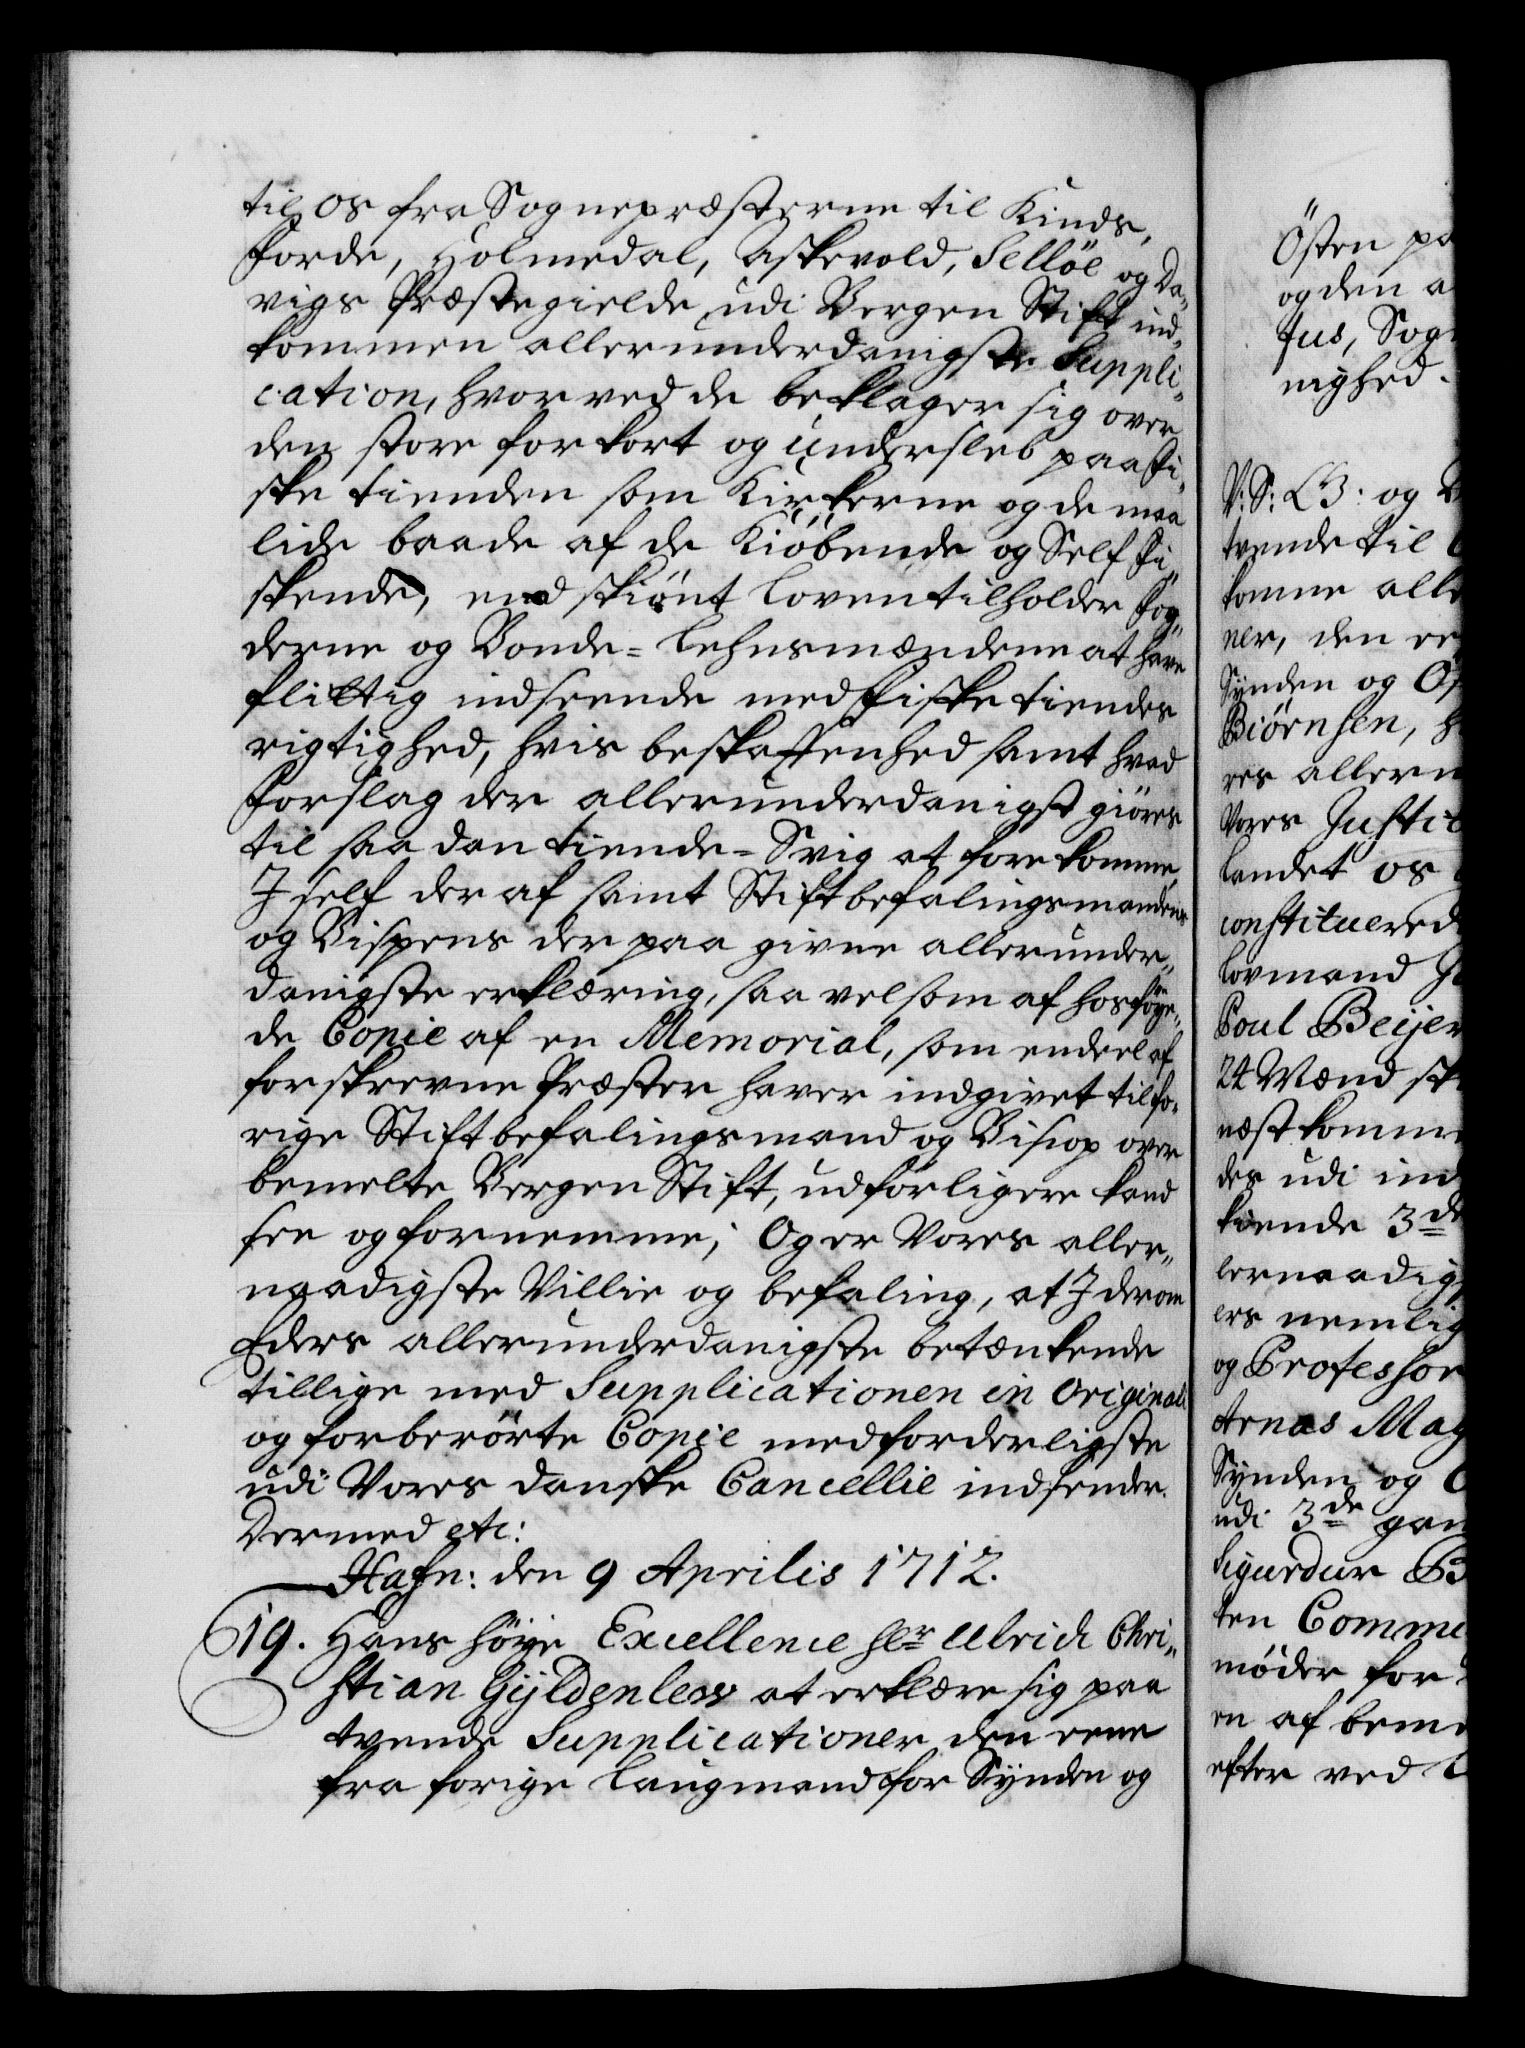 til os fra Sognepræsterne til Kinds,
Forde, Holmedal, Askevold, Selløe og Da-
vigs Præstegielde udi Bergen Stift ind-
kommen allerunderdanigste Suppli-
cation, hvorved de beklager sig over
den store forkort og Undersleb paa Fi-
ske tienden som Kirkerne og de maa
lide baade af de Kiøbende og Self Fi-
skende, end skiønt Loven tilholder Fog-
derne og Bonde-Lehnsmændene at have
flittig indseende med Fiske tiendes
rigtighed, hvis beskaffenhed samt hvad
Forslag der allerunderdanigst giøres
til saadan tiende-Svig at forekomme,
I self der af samt Stiftbefalingsmandens
og Bispens der paa givne allerunder-
danigste erklæring, saavelsom af hosføye-
de Copie af en Memorial, som endeel af
forskrevne Præster haver indgivet til fo-
rige Stiftbefalingsmand og Biscop over
bemelte Bergen Stift, udførligere kand
see og fornemme; Og er Vores aller-
naadigste Villie og befaling, at I derom
Eders allerunderdanigste betænkende
tillige med Supplicationen in Originali
og forberørte Copie medforderligste
udi Vores danske Cancellie indsender.
Dermed etc:
Hafn: den 9 Aprilis 1712.
19. Hans høye Excellence Hr Ulrich Chri-
stian Gyldenlew at erklære sig paa
tvende Supplicationer den eene
fra forige Laugmand for Synden og
Østen pa
og den a
tus, Sog
nighed.
V: S: G: og
tvende til
komne alle
ner, den ee
Synden og Øs
Biørnsen, h
res allern
Vores Justit
Landet os
constituered
Lovmand
Poul Beijer
24 Mænd sk
næstkomme
des udi ind
kiende 3de
lernaadig
ers nemlig
og Professor
Arnas Mag
Synden og
udi 3de gan
Sigurdur B
ten Commi
møder for
en af beme
efter ved